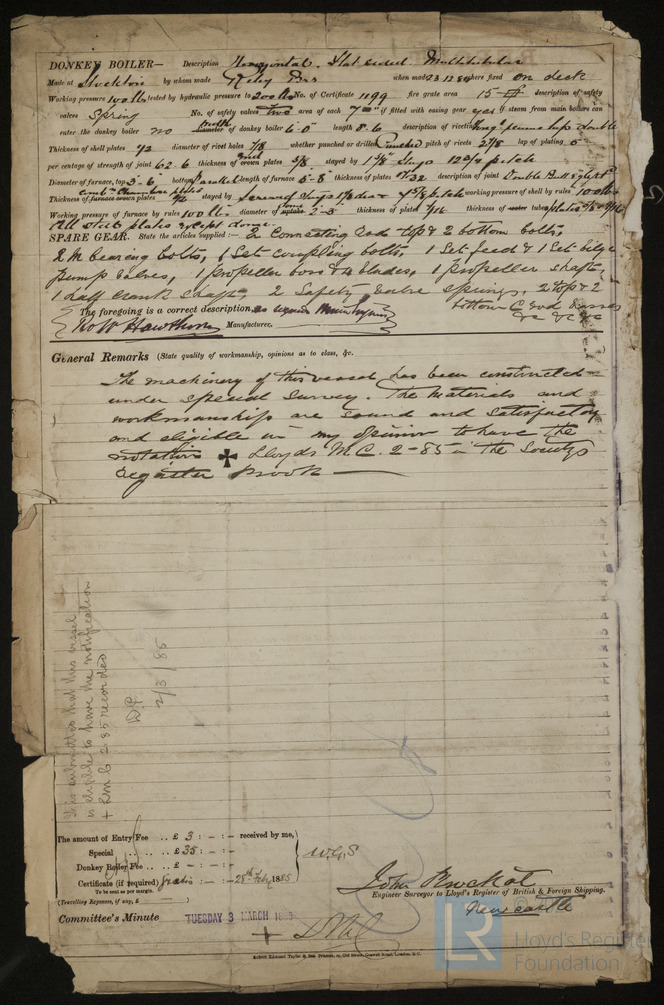 DONKEY BOILER— Description Horizontal. Flat ended Multitubular
Made at Stockton by whom made Riley Bros when made 23.12.84 where fixed on deck
Working pressure 100 lbs tested by hydraulic pressure to 200 lbs No. of Certificate 1199 fire grate area 15 description of safety
valves Spring No. of safety valves two area of each 7 if fitted with easing gear yes if steam from main boilers can
enter the donkey boiler no diameter of donkey boiler 6-0 length 8-6 description of riveting lap double
Thickness of shell plates 1/2 diameter of rivet holes 7/8 whether punched or drilled Punched pitch of rivets 2 7/8 lap of plating 5
per centage of strength of joint 62.6 thickness of crown plates 5/8 stayed by 1 7/8 Stays 12 pitch
Diameter of furnace, top 3-6 bottom Parallel length of furnace 5-8 thickness of plates description of joint Double Butt
Thickness of furnace crown plates stayed by Screwed Stays pitch working pressure of shell by rules 100 lbs
Working pressure of furnace by rules 100 lbs diameter of uptake 2-3 thickness of plates 7/16 thickness of water tubes
All Steel plates except dome.
SPARE GEAR. State the articles supplied:— 2 Connecting rod top & 2 bottom bolts,
2 M bearing bolts, 1 Set coupling bolts, 1 Set feed & 1 Set bilge
pump valves, 1 propeller boss & 4 blades, 1 propeller shaft,
1 half crank shaft, 2 Safety valve springs, 2 top & 2
bottom C rod brasses
&c &c &c
The foregoing is a correct description
R & W Hawthorn Manufacturer.
General Remarks (State quality of workmanship, opinions as to class, &c.
The machinery of this vessel has been constructed
under special survey. The materials and
workmanship are sound and satisfactory
and eligible in my opinion to have the
notation ✠ Lloyds M.C. 2-85 in the Societys
Register Book
This submitted that this vessel
is eligible to have the notification
+ LMC 2.85 recorded
2/3/85
The amount of Entry Fee .. £ 3 : - : - received by me,
Special .. .. £ 35 : - : -
Donkey Boiler Fee .. £ - : - : -
Certificate (if required) gratis : - : - 28th Feby 1885
To be sent as per margin.
(Travelling Expenses, if any, £ )
W.G.S
John Brockat
Engineer Surveyor to Lloyd's Register of British & Foreign Shipping.
Newcastle
Committee's Minute TUESDAY 3 MARCH 1885
+ LMC
Robert Edmund Taylor & Son Printers, 19, Old Street, Goswell Road, London, E.C.
LR
Lloyd's Register
Foundation